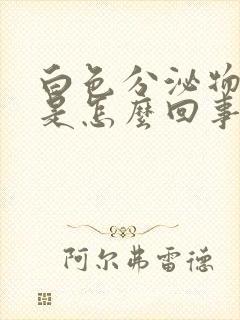 白色分泌物
是怎麼回事
阿尔弗雷德